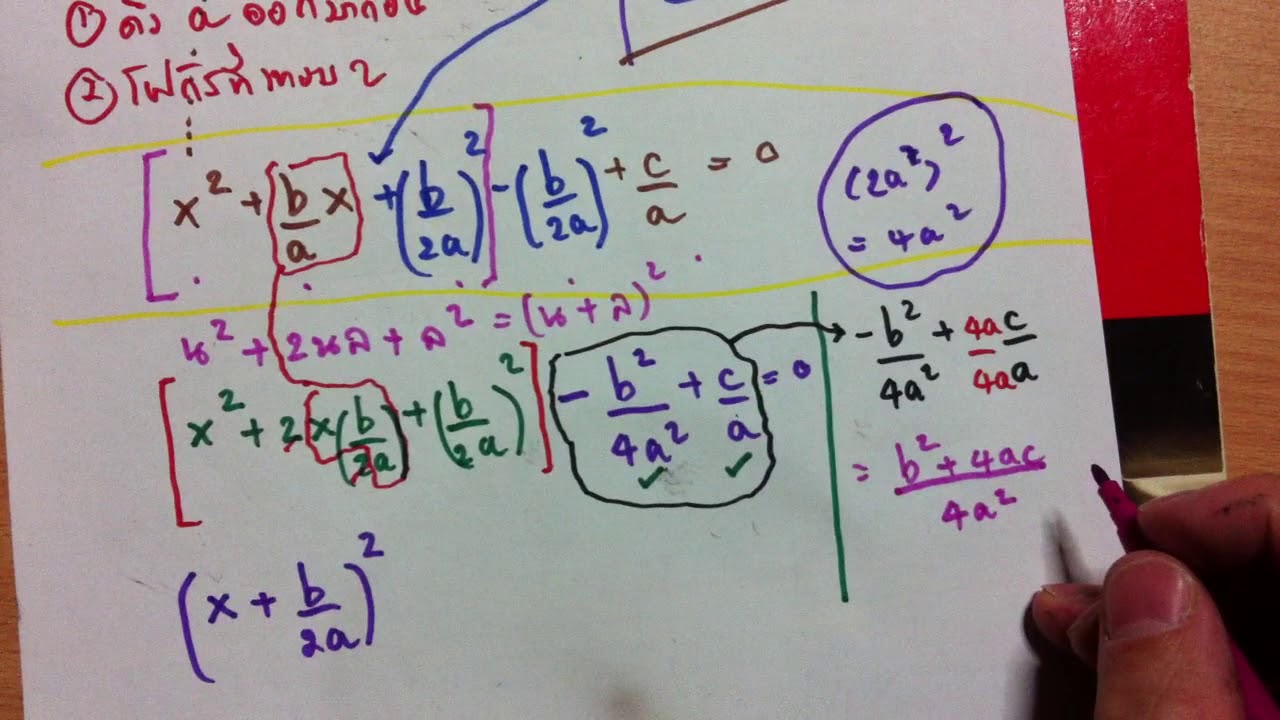 ① ดึง a ออกมาก่อน
② โฟกัสที่พจน์ 2
[x² + b/a x + (b/2a)²] - (b/2a)² + c/a = 0
(2a²)²
= 4a²
น² + 2นล + ล² = (น + ล)²
[x² + 2x(b/2a) + (b/2a)²] - b²/4a² + c/a = 0
-b²/4a² + 4ac/4aa
= b² + 4ac/4a²
(x + b/2a)²